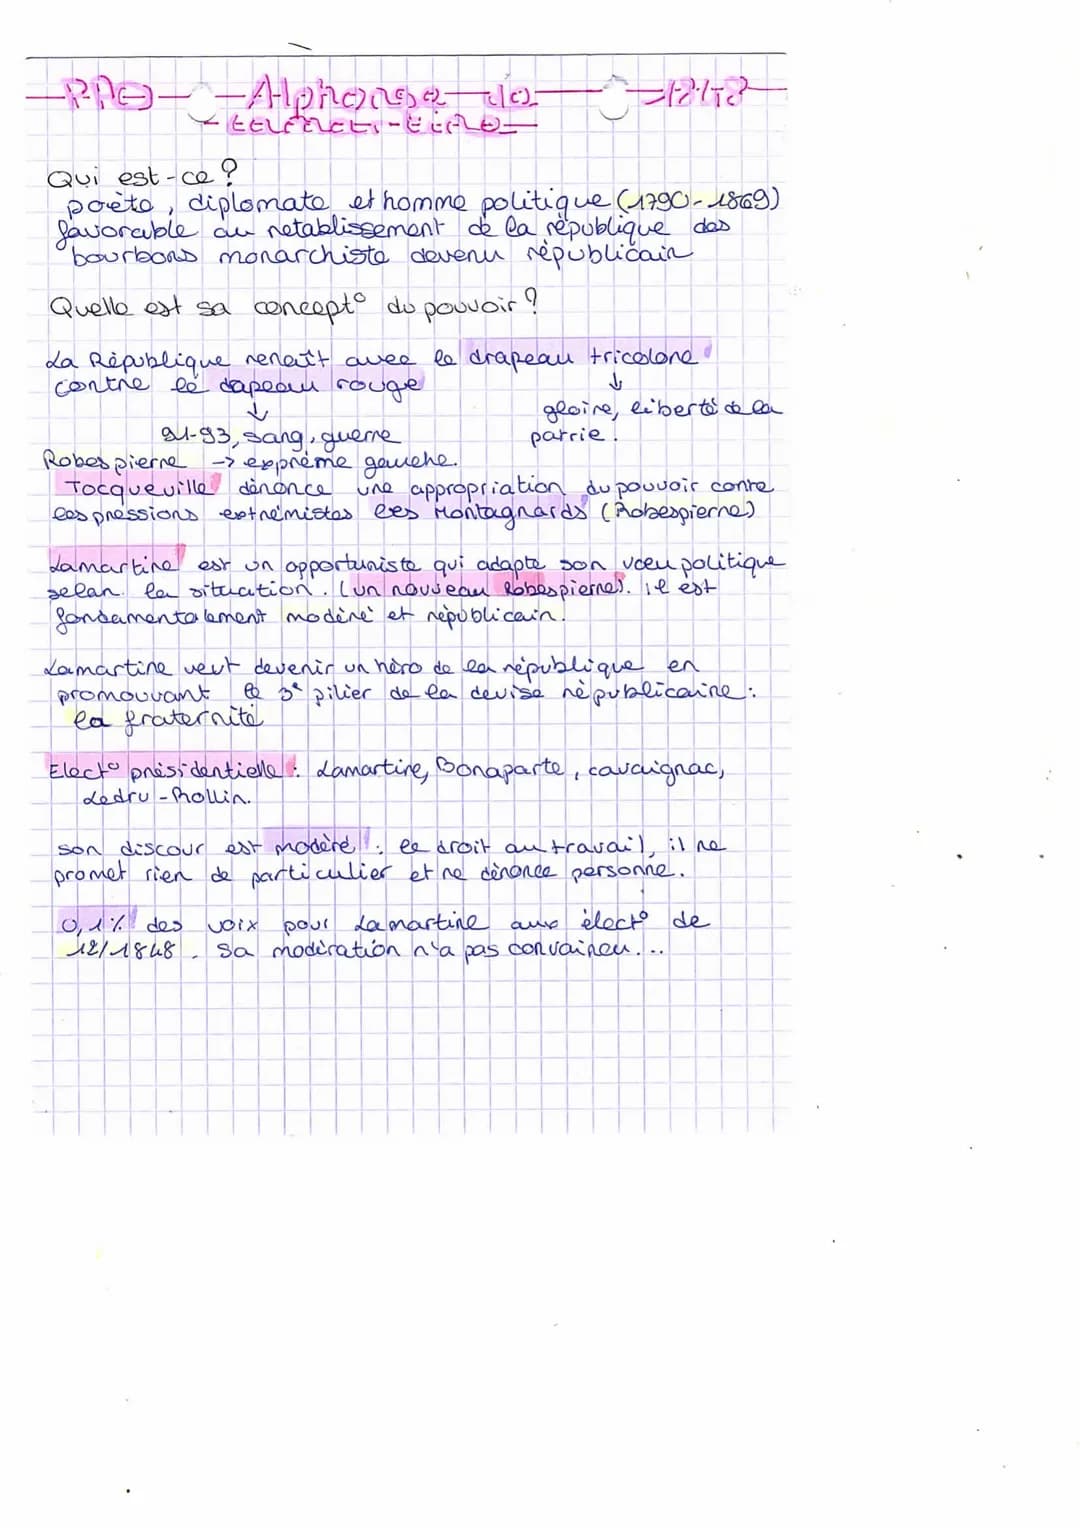 PPO Alphonse de 1848
Lamartine
Qui est-ce ?
poète, diplomate et homme politique (1790-1869)
favorable au retablissement de la république des
bourbons monarchiste devenu républicain
Quelle est sa concept° du pouvoir ?
La République renaît avec le drapeau tricolore
contre le dapeau rouge
↓ ↓
gloire, liberté de la
91-93, sang, guerre patrie.
Robespierre -> exprême gauche.
Tocqueville dénonce une appropriation du pouvoir contre
les pressions extrémistes les Montagnards (Robespierre)
Lamartine est un opportuniste qui adapte son voeu politique
selan la situation. (un nouveau Robespierre). il est
fondamentalement modéré et républicain.
Lamartine veut devenir un héro de la république en
promouvant le 3e pilier de la devise républicaine :
la fraternité
Elect° présidentielle : Lamartine, Bonaparte, cavaignac,
Ledru-Rollin.
son discour est modéré : le droit au travail, il ne
promet rien de particulier et ne dénonce personne.
0,1% des voix pour Lamartine aux élect° de
12/1848. Sa modération n'a pas convaincu...